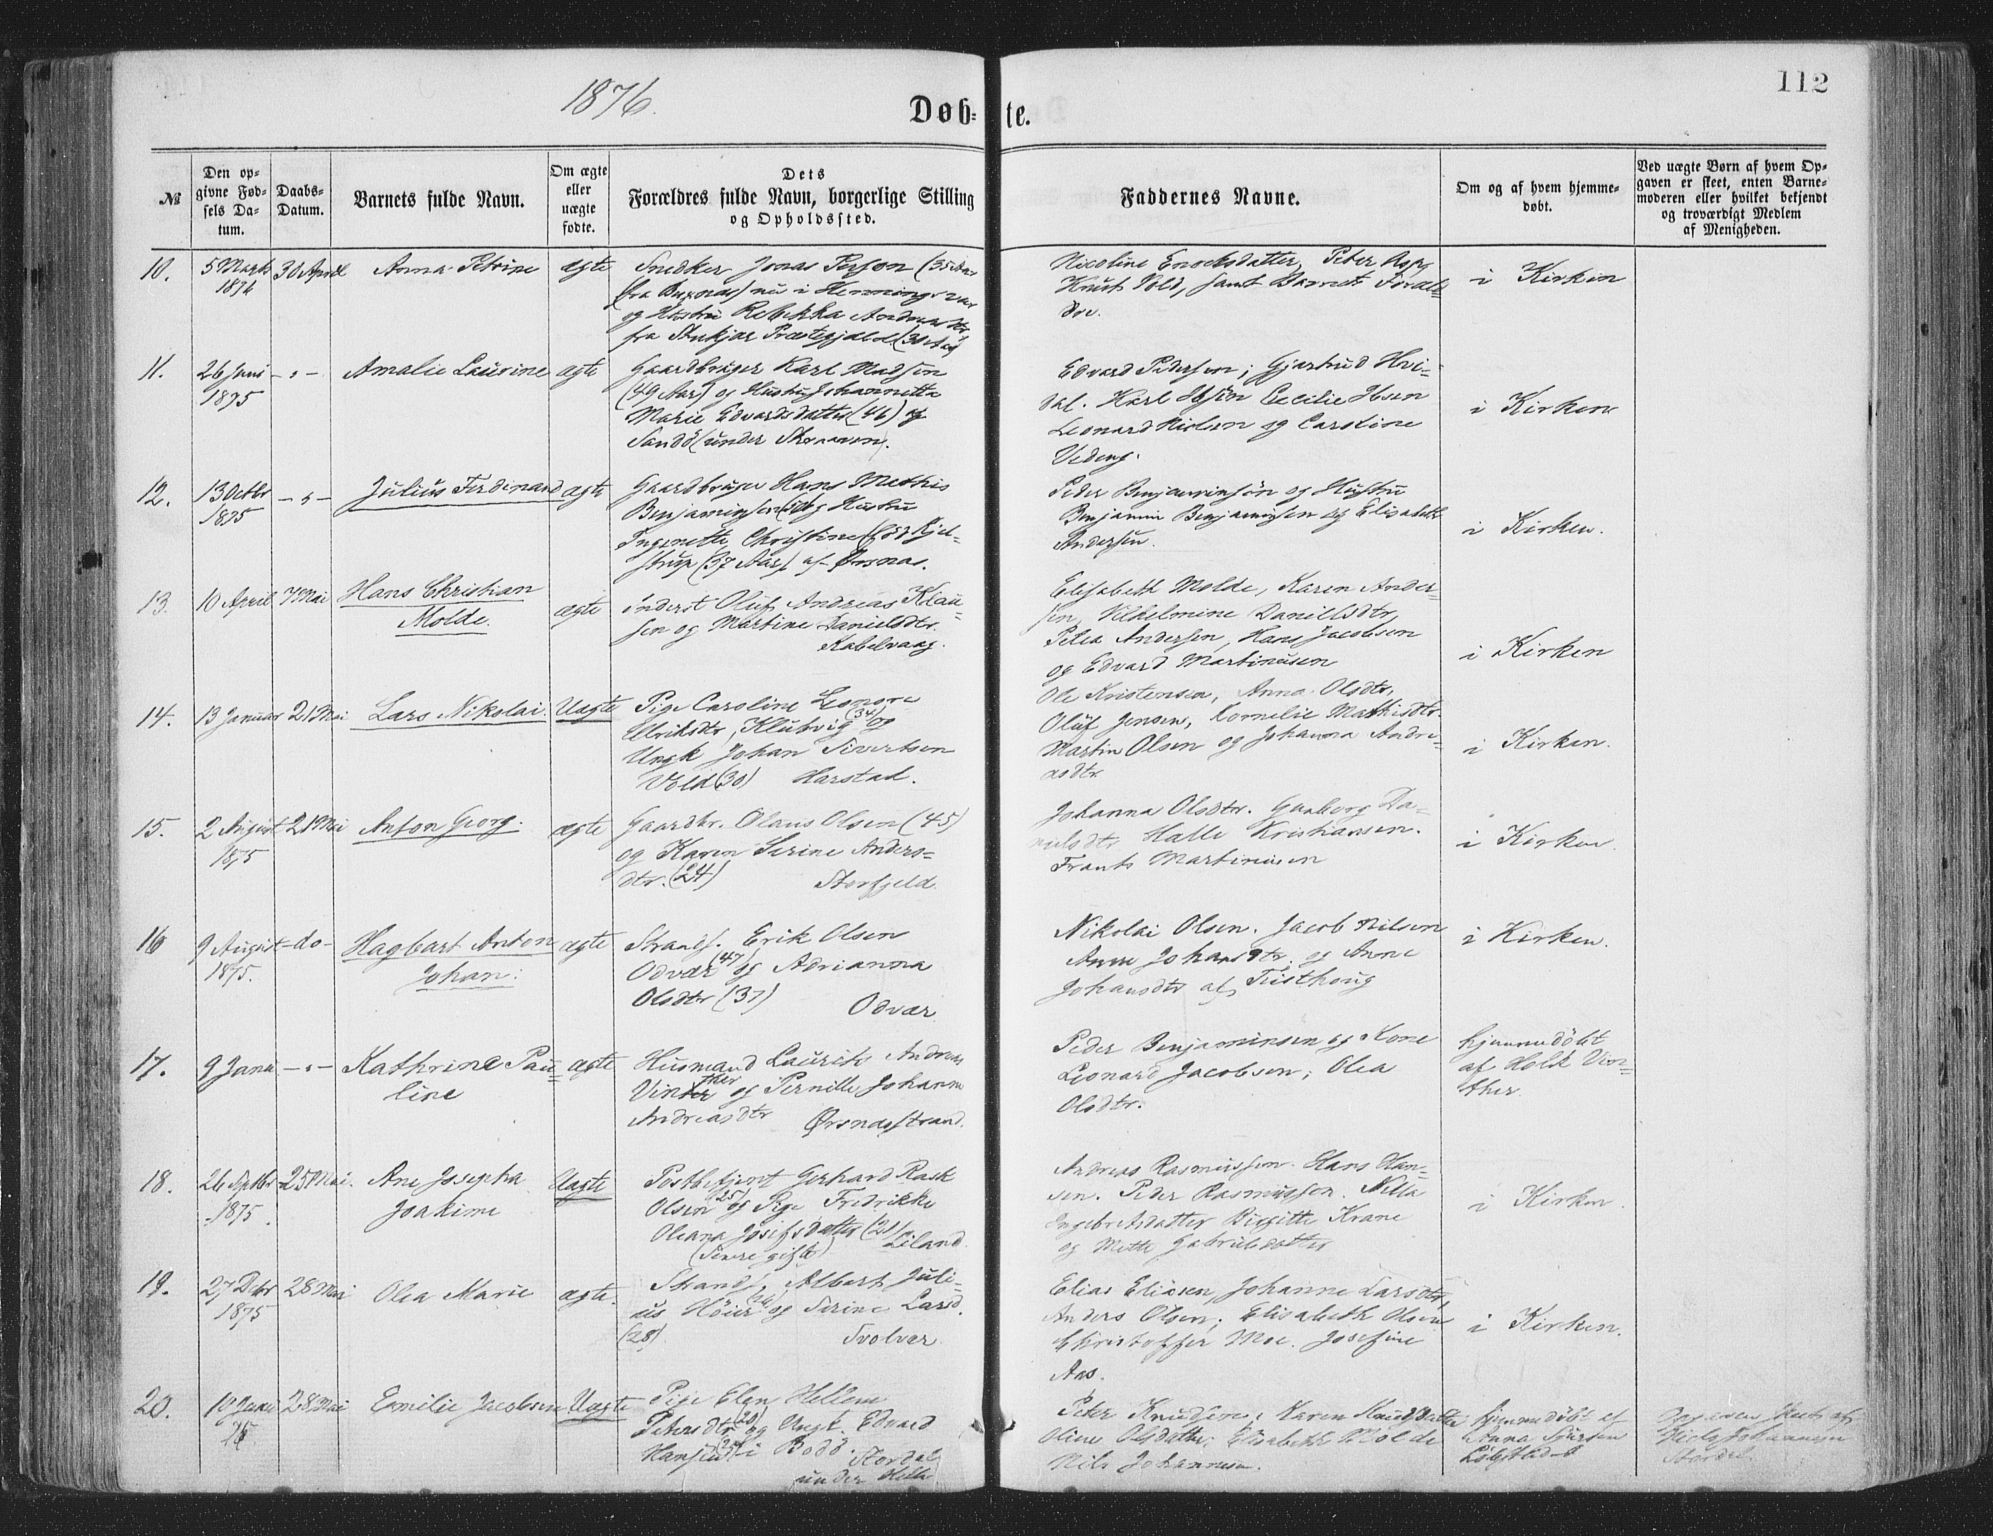 1876.
112
Døb-
te.
№
Den op-
givne Fød-
sels Da-
tum.
Daabs-
Datum.
Barnets fulde Navn.
Om ægte
eller
uægte
fødte.
Dets
Forældres fulde Navn, borgerlige Stilling
og Opholdssted.
Faddernes Navne.
Om og af hvem hjemme-
døbt.
Ved uægte Børn af hvem Op-
gaven er skeet, enten Barne-
moderen eller hvilket bekjendt
og troværdigt Medlem
af Menigheden.
10.
5 Marts
1876
30 April
Anna Petrine
ægte
Snedker Jonas
nu i Henningsvær
og Hustru Rebekka
fra Præstegjæld
Nicoline Enochsdatter, Peter
Vold, samt Barnets Foræl-
dre.
i Kirken
11.
26 Juni
1875
- " -
Amalie Laurine
ægte
Gaardbruger Karl Madsen
(49 Aar) og Hustru Johannette
Marie Edvardsdatter (46) af
Sandø (under
Edvard Pedersen; Gjertrud Hvi-
dal. Karl Ibsen Cecilie Ibsen
Leonard Nielsen og Caroline
i Kirken
12.
13 Octbr
1875
- " -
Julius Ferdinand
ægte
Gaardbruger Hans Mathis
Benjaminsen og Hustru
Ingenette Christine født Kjel-
strup (37 Aar) af Ørsnæs.
Peder Benjaminsøn og Hustru
Benjamin Benjaminsen og Elisabeth
Andersen.
i Kirken.
13.
10 April
7 Mai
Hans Christian
Molde.
ægte
inderst Oluf Andreas Klau-
sen og Martine Danielsdtr.
Kabelvaag.
Elisabeth Molde, Karen Ander-
sen, Vilhelmine Danielsdtr,
Petra Andersen, Hans Jacobsen
og Edvard Martinusen
i Kirken
14.
13 Januar
21 Mai
Lars Nikolai.
Uægte
Pige Caroline Leonore
Ulriksdtr, og
Ungk Johan Sivertsen
Vold (30) Harstad.
Ole Kristensen, Anna Olsdtr,
Oluf Jensen, Kornelie Mathisdtr.
Martin Olsen og Johanna Andre-
asdtr
i Kirken.
15.
2 August
1875
21 Mai
Anton Georg.
ægte
Gaardbr. Olaus Olsen (45)
og Karen Serine Anders-
dtr. (24) Storfjeld.
Johanna Olsdtr. Da-
nielsdtr Halle Kristiansen.
Frants Martinusen
i Kirken.
16
9 August
1875.
- do -
Hagbart Anton
Johan.
ægte
Strands. Erik Olsen
Odvær (47) og Adrianna
Olsdtr (37) Odvær
Nikolai Olsen. Jacob Nilsen
Anne Johansdtr. og Anne
Johansdtr af
i Kirken.
17.
9 Janu
- " -
Kathrine Pau-
line
ægte
Husmand Laurits Andreas
Vinther og Pernille Johanna
Andreasdtr Ørsnæsstrand.
Peder Benjaminsen og Kone
Leonard Jacobsen; Olea
Olsdtr.
hjemmedøbt
af Holk Vin-
ther.
18.
26 Septbr
1875.
25 Mai.
Ane Josepha
Joakime
Uægte
Postbetjent Gerhard Rask
Olsen (25) og Pige Fredrikke
Oleana Josefsdatter (21)
(Senere gifte) Liland
Andreas Rasmussen. Hans Han-
sen. Peder Rasmussen. Nella
Ingebretsdatter Birgitte Krane
og Mette Gabrielsdatter
i Kirken.
19.
27 Debr
1875
28 Mai
Olea Marie
ægte.
Strands. Albert Juli-
us Høier og Serine Larsd.
(28) Svolvær
Elias Eliasen, Johanne Larsdtr,
Anders Olsen; Elisabeth Olsen
Christoffer Moe. Josefine
Aas.
i Kirken.
20.
10 Janu
28 Mai
Emilie Jacobsen
Uægte
Pige Elen Hellene
Petersdtr (20) og Ungk. Edvard
Hansen i Bodø.
Peter Knudsen; Karen
Oline Olsdatter; Elisabeth Molde
Nils Johannesen.
hjemmedøbt af
Anna
Opgaven skeet af